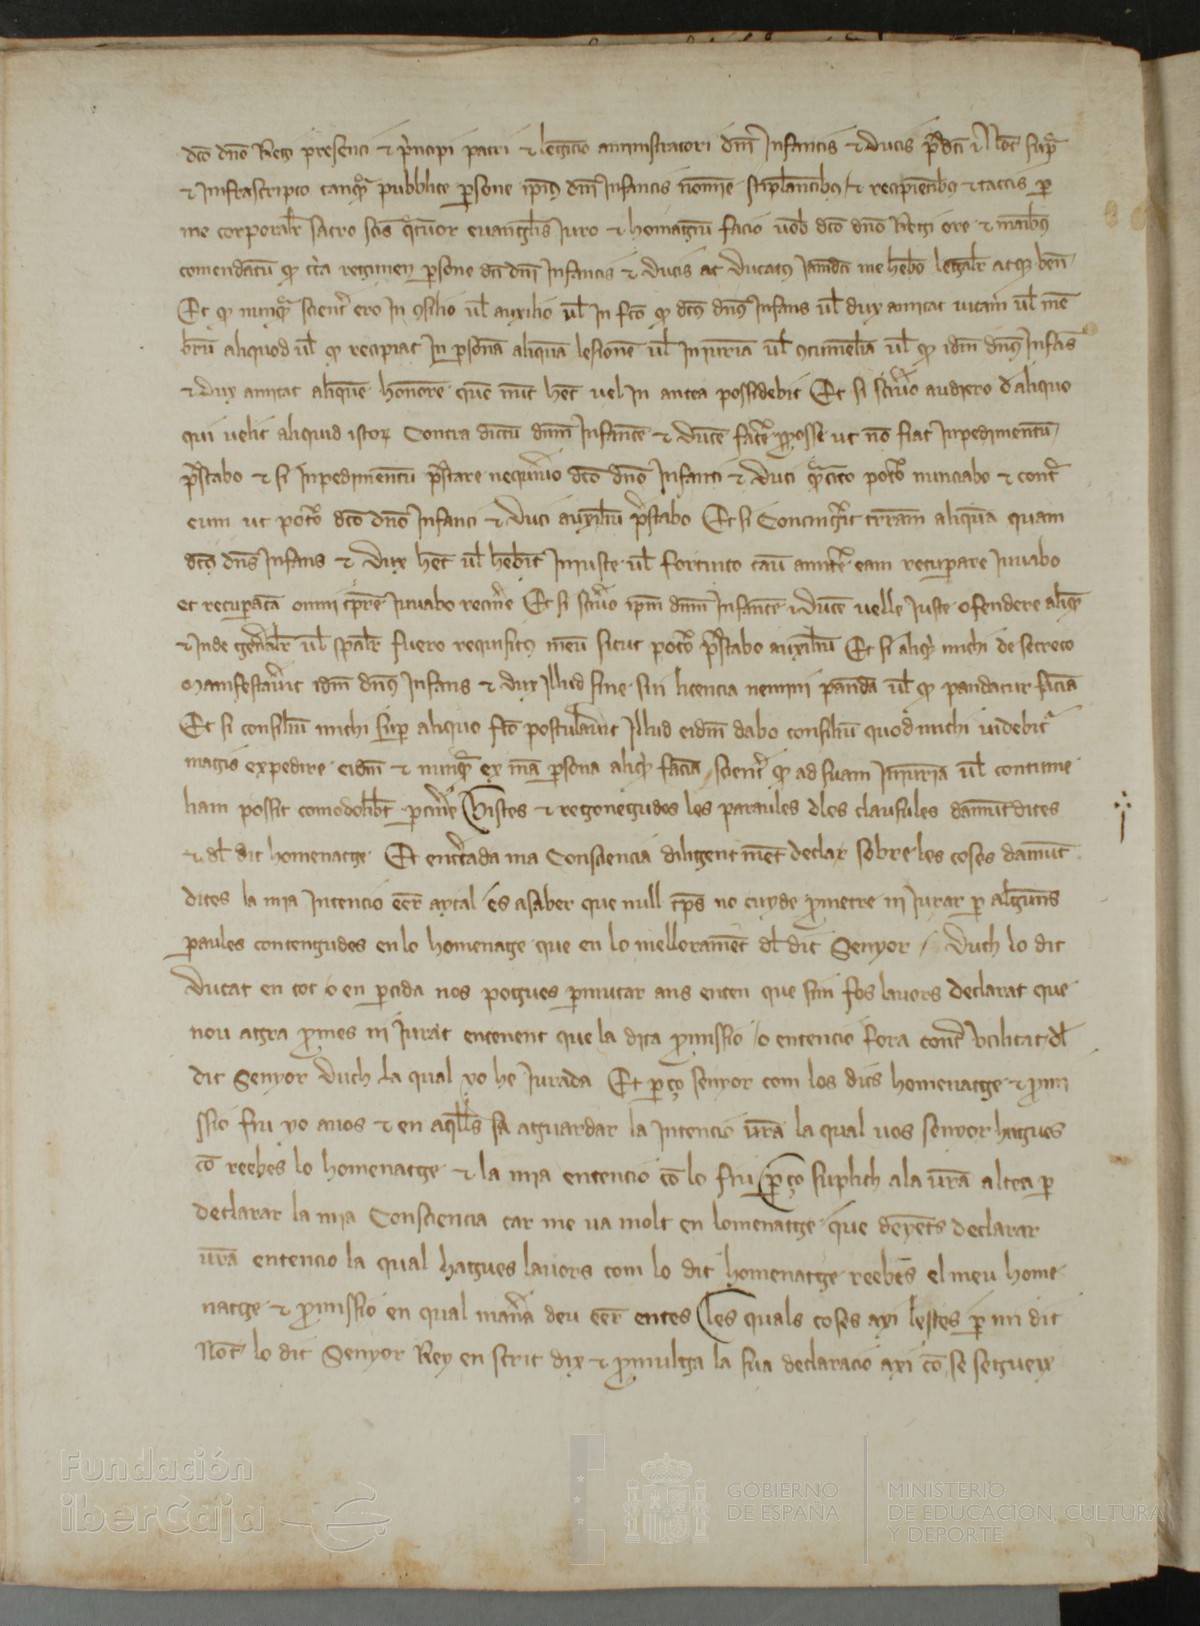 dcõ dnõ Regi presenti et principi patri et legitimo aministratori dni Infantis et Ducis predci et Not supra
et infrascripto tanquã pubblice persone ipius dni Infantis nomine stiplantibus et recipientibus et tactis per
me corporalr sacro scis quatuor evangliis Juro et homagiũ facio vob dcõ dnõ Regi ore et manibus
comendatũ quod circa regimen persone dci dni Infantis et Ducis ac Ducatus Iamdci me hebo legalr atque ben
Et quod nunquã scienter ero in consilio vel auxilio vel in fcõ quod dcus dnus Infans vel dux amitat vitam vel mẽ
brũ aliquod vel quod recipiat In persona aliquã lesionẽ vel Injuriã vel contumeliã vel quod idm dnus Infans
et dux amitat aliquẽ honorẽ quẽ nũc het vel In antea possidebit Et si scivero audiero de aliquo
qui velit aliquid istor Contra dictũ dnm Infantẽ et ducẽ facere pro posse ut nõ fiat Inpedimentũ
prestabo et si Inpedimentũ prestare nequivero dcõ dnõ Infanti et duci quã cito potero nunciabo et contra
eum ut potero dcõ dnõ Infanti et duci auxiliũ prestabo Et si Contingerit terram aliquã quam
dcus dns Infans et Dux het vel hebit Injuste vel fortuito casu amittere eam recuperare Iuvabo
et recuperatã omni tempore Iuvabo retinere Et si scivero ipm dnm Infantẽ et ducẽ velle Iuste ofendere aliquẽ
et Inde generalr vel spalr fuero requisitus meũ sicut potero prestabo auxiliũ Et si aliquid michi de secreto
Manifestaverit idm dnus Infans et dux Illud sine sui licencia nemini pandã vel quod pandatur faciã
Et si consiliũ michi super aliquo fcõ postulaverit Illud eidm dabo consiliũ quod michi videbitur
magis expedire eidm et nunquã ex mea persona aliquid faciã scienter quod ad suam Injuriã vel contume
liam possit comodolibet pertinere Vistes et regonegudes les paraules dles clausules damũt dites
et del dit homenatge Et encercada ma Consciencia diligentmẽt declar sobre les coses damũt
dites la mia Intencio eẽr aytal es asaber que null tẽps no cuyde prometre ni Jurar per algunes
paules contengudes en lo homenage que en lo melloramẽt del dit Senyor / Duch lo dit
Ducat en tot o en partida nos pogues permutar ans enten que sim fos lavors declarat que
nou agra promes ni Jurat entenent que la dita promissio / o entencio fora contra utilitat del
dit Senyor Duch La qual yo he Jurada Et perço senyor com los dits homenatge et promi
ssio fiu yo avos et en aqlls fa aguardar la Intencio vrã la qual vos senyor hagues
cõ reebes lo homenatge et la mia entencio cõ lo fiu perço suplich ala vrã altea per
declarar la mia Consciencia car me va molt en lomenatge que deyẽts declarar
vrã entencio la qual hagues lavors com lo dit homenatge reebẽs el meu home
natge et promissio en qual manera deu eẽr entes les quals coses axi lestes per mi dit
Not lo dit Senyor Rey en scrit dix et promulga la sua declaracio axi cõ se segueix
Fundación
iberCaja
GOBIERNO
DE ESPAÑA
MINISTERIO
DE EDUCACIÓN, CULTURA
Y DEPORTE